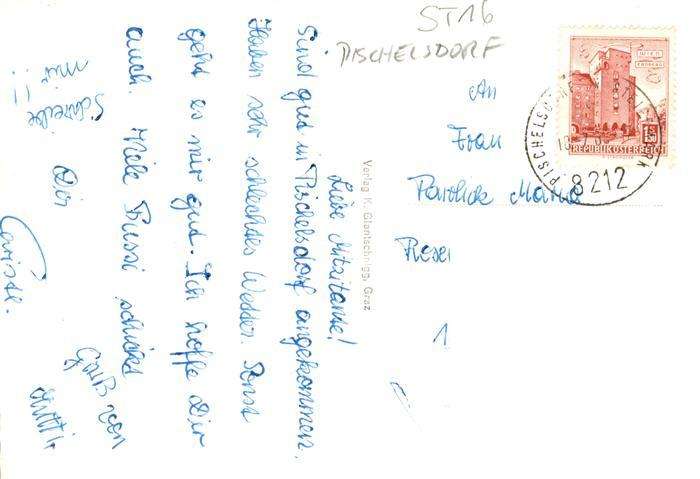 ST16
PISCHELSDORF
WIEN
FAVORITEN
1.50
REPUBLIK ÖSTERREICH
PISCHELSDORF
8212
An
Frau
Maria
1
Verlag K. Glantschnigg, Graz
Liebe Mitzitante!
Sind gut in Pischelsdorf angekommen.
Haben sehr schlechtes Wetter. Sonst
geht es mir gut. Ich hoffe Dir
auch. Viele Bussi schickt
Dir
Schreibe
mir!!
Gruß von
Mutti